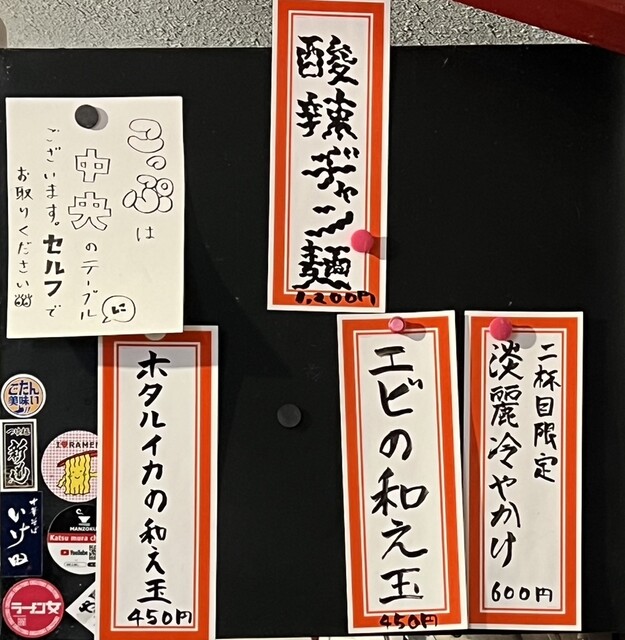 酸辣ヂャン麺
1,200円
こっぷは
中央のテーブルに
ございます。セルフで
お取りください
二杯目限定
淡麗冷やかけ
600円
エビの和え玉
450円
ホタルイカの和え玉
450円
ごたん
美味い
RAMEN
MANZOKU
Katsu mura ch
YouTube
中華そば
いけ田
ラーメン女